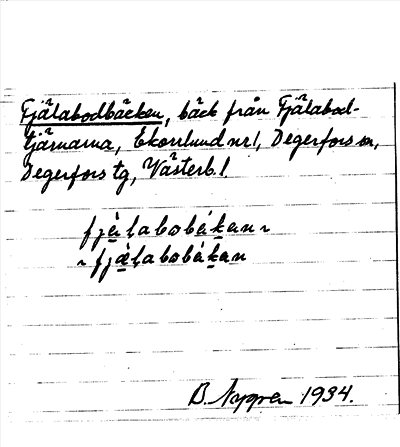 Fjälabodbäcken, bäck från Fjälabod-
tjärnarna, Ekorrlund nr 1, Degerfors sn,
Degerfors tg, Västerb. l.
fjàlabobákan ~
~ fjælabobákan
B. Nygren 1934.